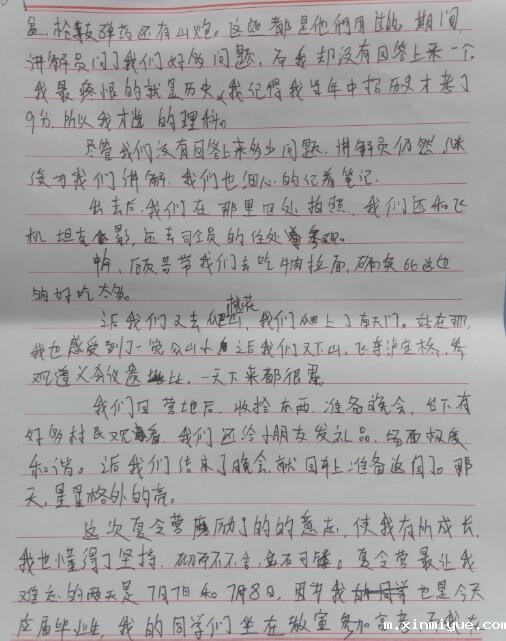 枪支弹药还有山炮。这些都是他们用过的。期间,
讲解员问了我们好多问题,而我却没有回答上来一个。
我最疼恨的就是历史,我记得我当年中招历史才考了
9分,所以我才选的理科。
尽管我们没有回答上来多少问题,讲解员仍然继
续为我们讲解,我们也细心的记着笔记。
出去后,我们在那里四处拍照,我们还和飞
机 坦克 影,还去司令员的住处 参观。
中午, 哥带我们去吃牛肉拉面,确实比这边
的好吃太多。
之后我们又去爬桃花山,我们爬上了南天门。站在那,
我也感受到了一览众山小。之后我们又下山,飞夺泸定桥,参
观遵义会议遗址,一天下来都很累。
我们回营地后,收拾东西,准备晚会,台下有
好多村民观看,我们还给小朋友发礼品,场面极度
和谐。之后我们结束了晚会,就回车上准备返回了。那
天,星星格外的亮。
这次夏令营磨励了的的意志,使我有所成长,
我也懂得了坚持,砌而不舍,金石可镂。夏令营最让我
难忘的两天是7月7日和7月8日,因为我 也是今天
应届毕业生,我的同学们坐在教室参加高考,而我在
m.xinmiyue.com